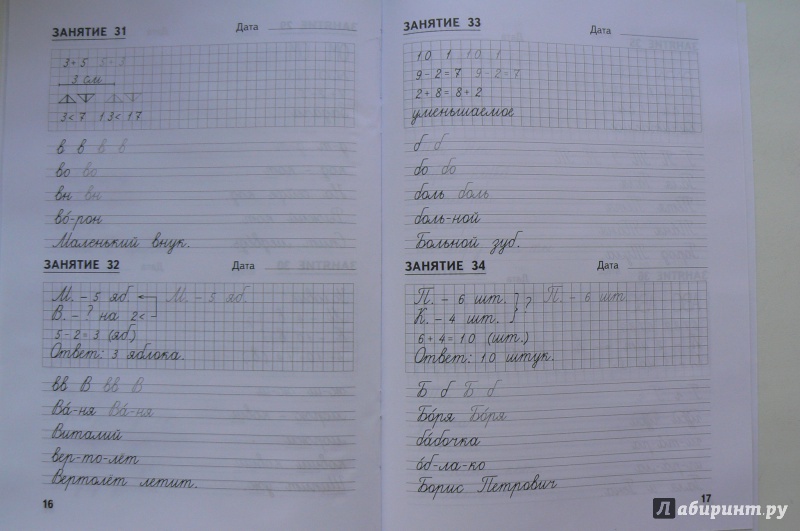 ЗАНЯТИЕ 31 Дата
3+5 3+5
3 см
3<7 13<17
в в в в
во во
вн вн
во́-рон
Маленький внук.
ЗАНЯТИЕ 32 Дата
М. – 5 яб. М. – 5 яб.
В. – ? на 2<
5-2=3 (яб.)
Ответ: 3 яблока.
вв В вв В
Ва́-ня Ва́-ня
Виталий
вер-то-лёт
Вертолёт летит.
16
ЗАНЯТИЕ 33 Дата
10 1 10 1
9-2=7 9-2=7
2+8=8+2
уменьшаемое
б б
бо бо
боль боль
боль-ной
Больной зуб.
ЗАНЯТИЕ 34 Дата
П. – 6 шт. ? П. – 6 шт.
К. – 4 шт.
6+4=10 (шт.)
Ответ: 10 штук.
Б б Б б
Бо́ря Бо́ря
ба́бочка
о́б-ла-ко
Борис Петрович
17
Лабиринт.ру